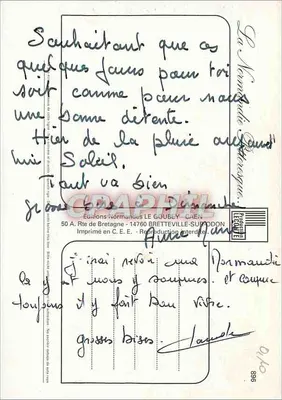 Souhaitant que ces
quelques jours pour toi
soit comme pour nous
une bonne détente.
Hier de la pluie aujourd'
hui Soleil.
Tout va bien
grosses bises à Dimanche
Anne Marie
La Normandie Pittoresque
CARTEXPO
Editions Normandes LE GOUBEY - CAEN
50 A, Rte de Bretagne - 14760 BRETTEVILLE-SUR-ODON
Imprimé en C.E.E. - Reproduction interdite
J'irai revoir ma Normandie
la y est nous y sommes. et comme
toujours il y fait bon vivre.
grosses bises. Claude
896